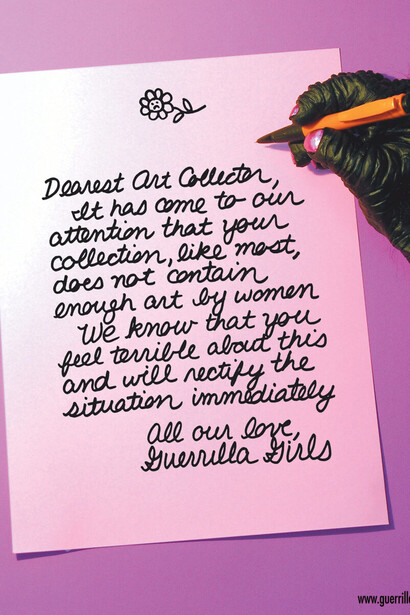 Dearest Art Collector,
It has come to our
attention that your
collection, like most,
does not contain
enough art by women
We know that you
feel terrible about this
and will rectify the
situation immediately
All our love,
Guerrilla Girls
www.guerrill